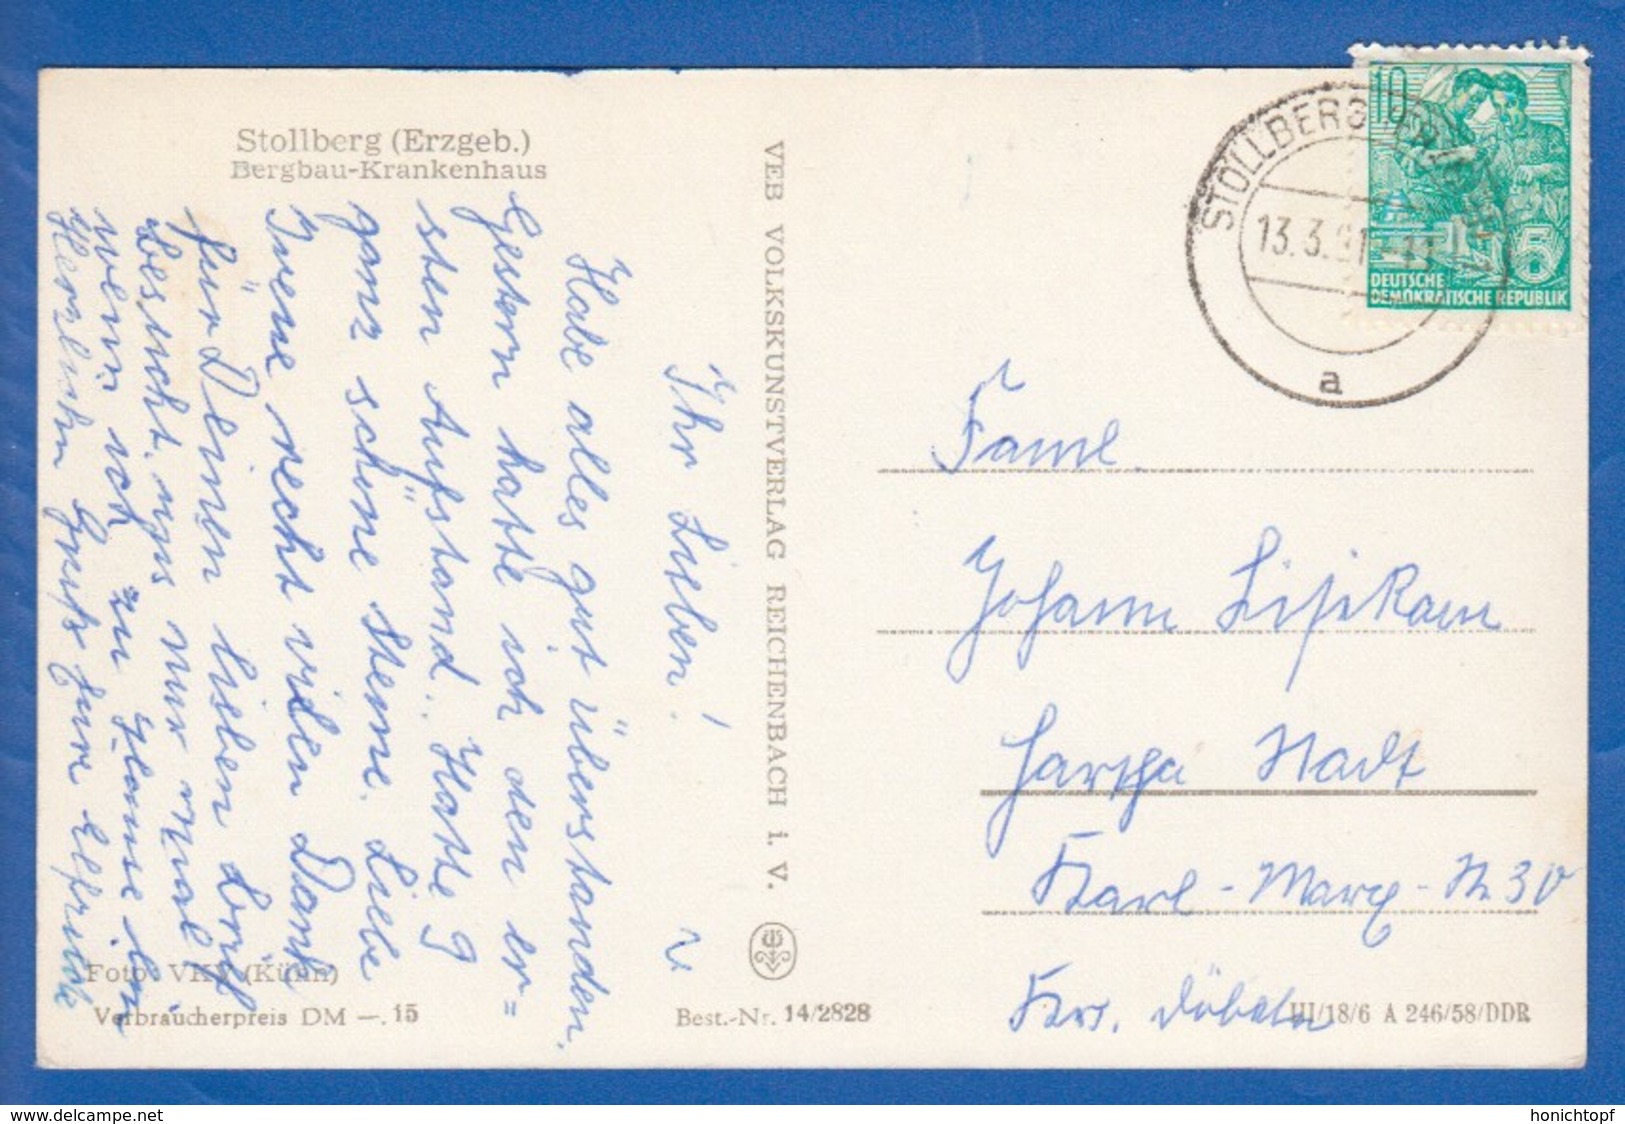 Stollberg (Erzgeb.)
Bergbau-Krankenhaus
Ihr Lieben!
Habe alles gut überstanden.
Gestern hatte ich den er=
sten Aufstand. Hatte 9
ganz schöne Steine. Liebe
Irene recht vielen Dank
für Deinen lieben Brief
Besucht uns nur mal
wenn ich zu Hause bin
Herzlichen Gruß Eure Elfriede
Foto: VKV (Kühn)
Verbraucherpreis DM —.15
Best.-Nr. 14/2828
VEB VOLKSKUNSTVERLAG REICHENBACH i. V.
STOLLBERG (ERZGEB)
13.3.61.-11
a
10
5
DEUTSCHE
DEMOKRATISCHE REPUBLIK
Faml.
Johann
Hartha Stadt
Karl-Marx-Str 30
Krs. Döbeln
III/18/6 A 246/58/DDR
honichtopf
www.delcampe.net